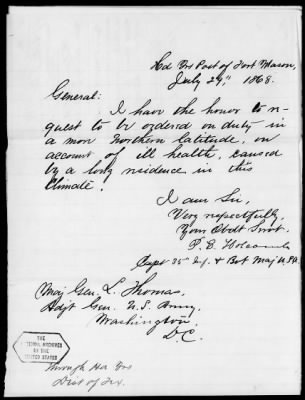 Hd Qrs Post of Fort Mason,
July 29", 1868.
General:
I have the honor to re-
quest to be ordered on duty in
a more Northern latitude, on
account of ill health, caused
by a long residence in this
Climate.
I am Sir,
Very respectfully,
Your Obdt Servt.
P. E. Holcomb
Capt 35 Inf. & Bvt Maj U.S.A.
Maj Gen. L. Thomas,
Adjt Gen. U.S. Army,
Washington
D.C.
THE
NATIONAL ARCHIVES
OF THE
UNITED STATES
Through Hd Qrs
Dist of Tex.